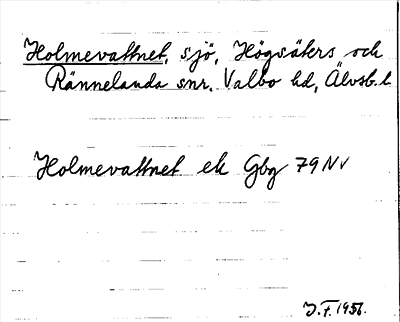 Holmevattnet, sjö, Högsäters och
Rännelanda snr, Valbo hd, Älvsb. l.
Holmevattnet ek Gbg 79 NV
J.F. 1956.